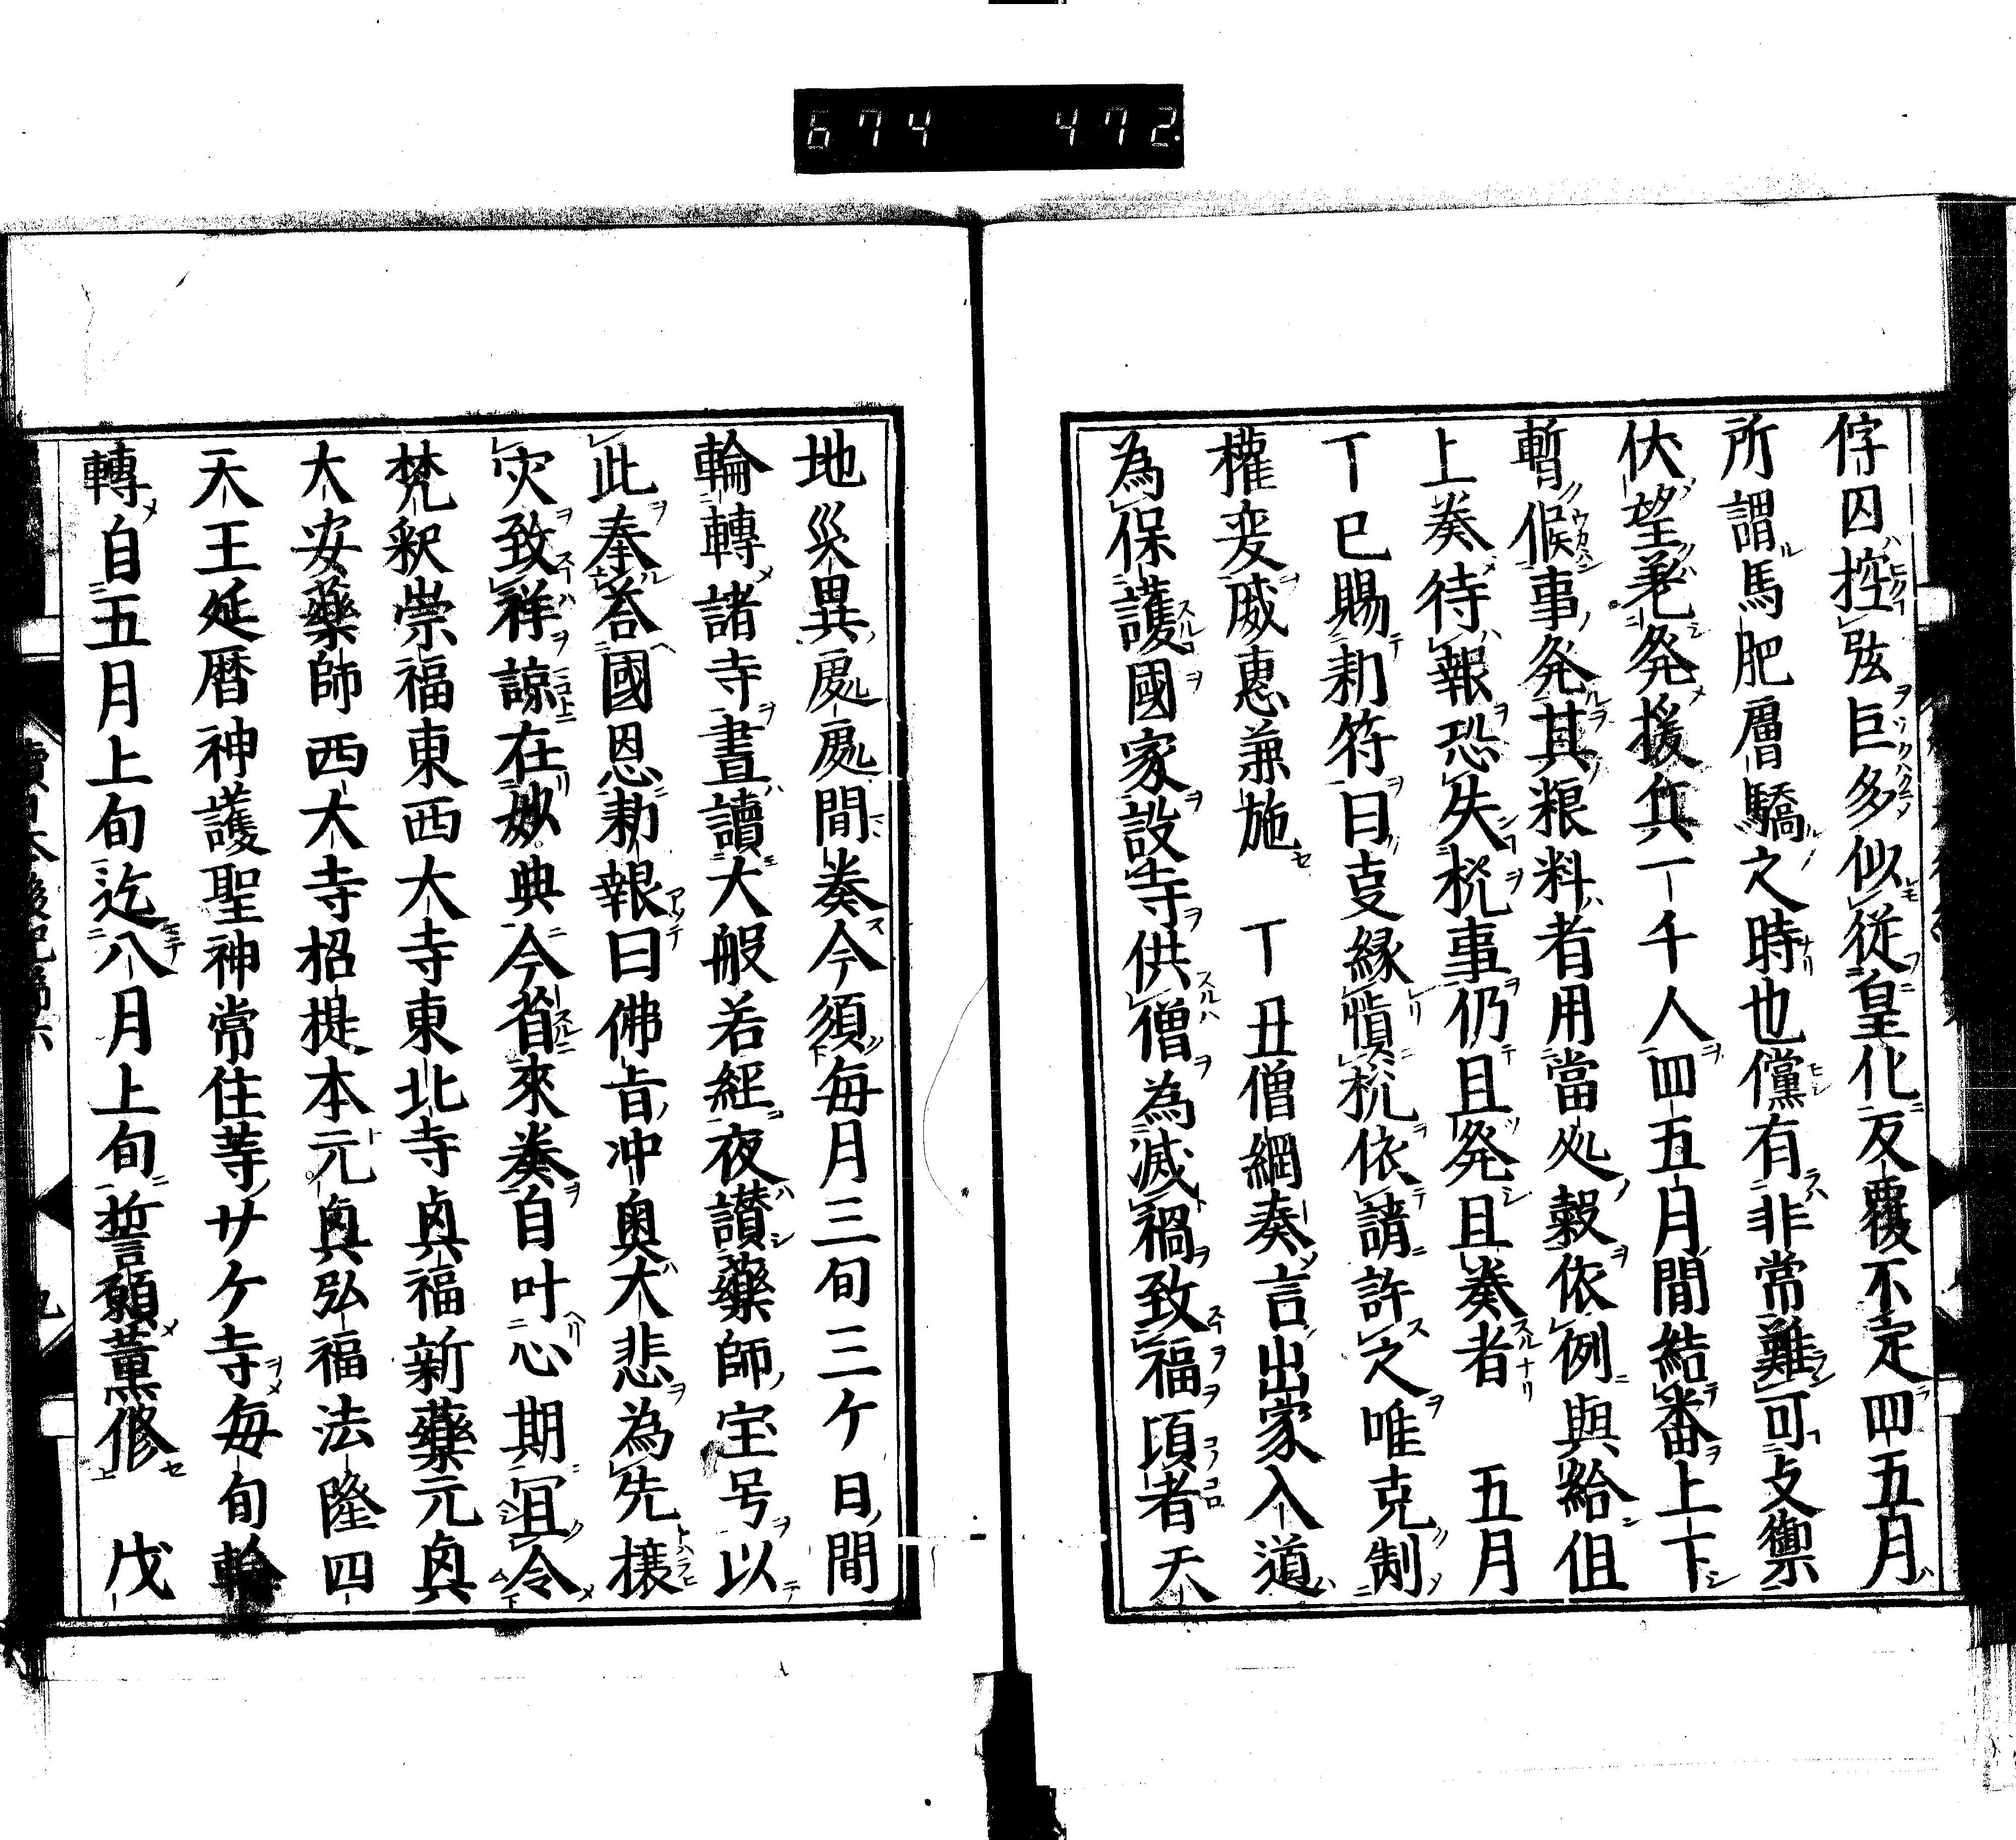 674 472
俘囚控弦巨多似従皇化反覆不定四五月
所謂馬肥虜驕之時也儻有非常難可支禦
伏望差発援兵一千人四五月間結番上下
暫候事発其粮料者用當処穀依例與給但
上奏待報恐失機事仍且発且奏者 五月
丁巳賜勅符曰㕝縁慎機依請許之唯克制
權変威惠兼施 丁丑僧綱奏言出家入道
為保護國家設寺供僧為滅禍致福頃者天
地災異處處間奏今須毎月三旬三ケ日間
輪轉諸寺晝讀大般若経夜讃藥師宝号以
此奉荅國恩勅報曰佛旨冲奧大悲為先攘
灾致祥諒在妙典今省來奏自叶心期冝令
梵釈崇福東西大寺東北寺𠔥福新藥元𠔥
大安藥師西大寺招提本元𠔥弘福法隆四
天王延暦神護聖神常住等廿ケ寺毎旬輪
轉自五月上旬迄八月上旬誓願薫修 戊
續日本後紀
九